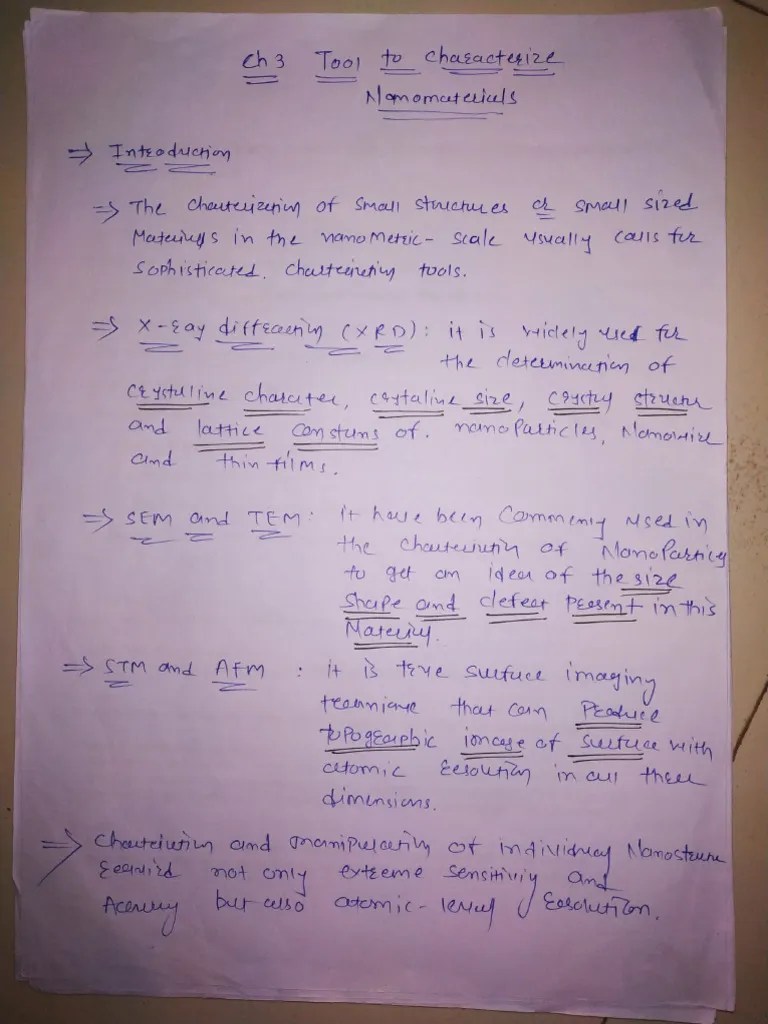 Ch 3 Tool to Characterize
Nanomaterials
⇒ Introduction
⇒ The charterization of small structures or small sized
Materials in the nanometric-scale usually calls for
Sophisticated. Charteriration tools.
⇒ X-ray diffraction (XRD): it is widely used for
the determination of
Crystalline character, crytaline size, crystal structur
and lattice constans of. nanoparticles, Nanowire
and thin films.
⇒ SEM and TEM: it have been Commenly used in
the charterization of Nanoparticles
to get an idea of the size
shape and defeat present in this
Material.
⇒ STM and AFM : it is true surface imaging
technique that can Produce
topographic image of surface with
atomic resolution in all three
dimensions.
⇒ Charterization and manipulation of individual Nanostructure
required not only extreme sensitiviy and
Accuracy but also atomic-level resolution.